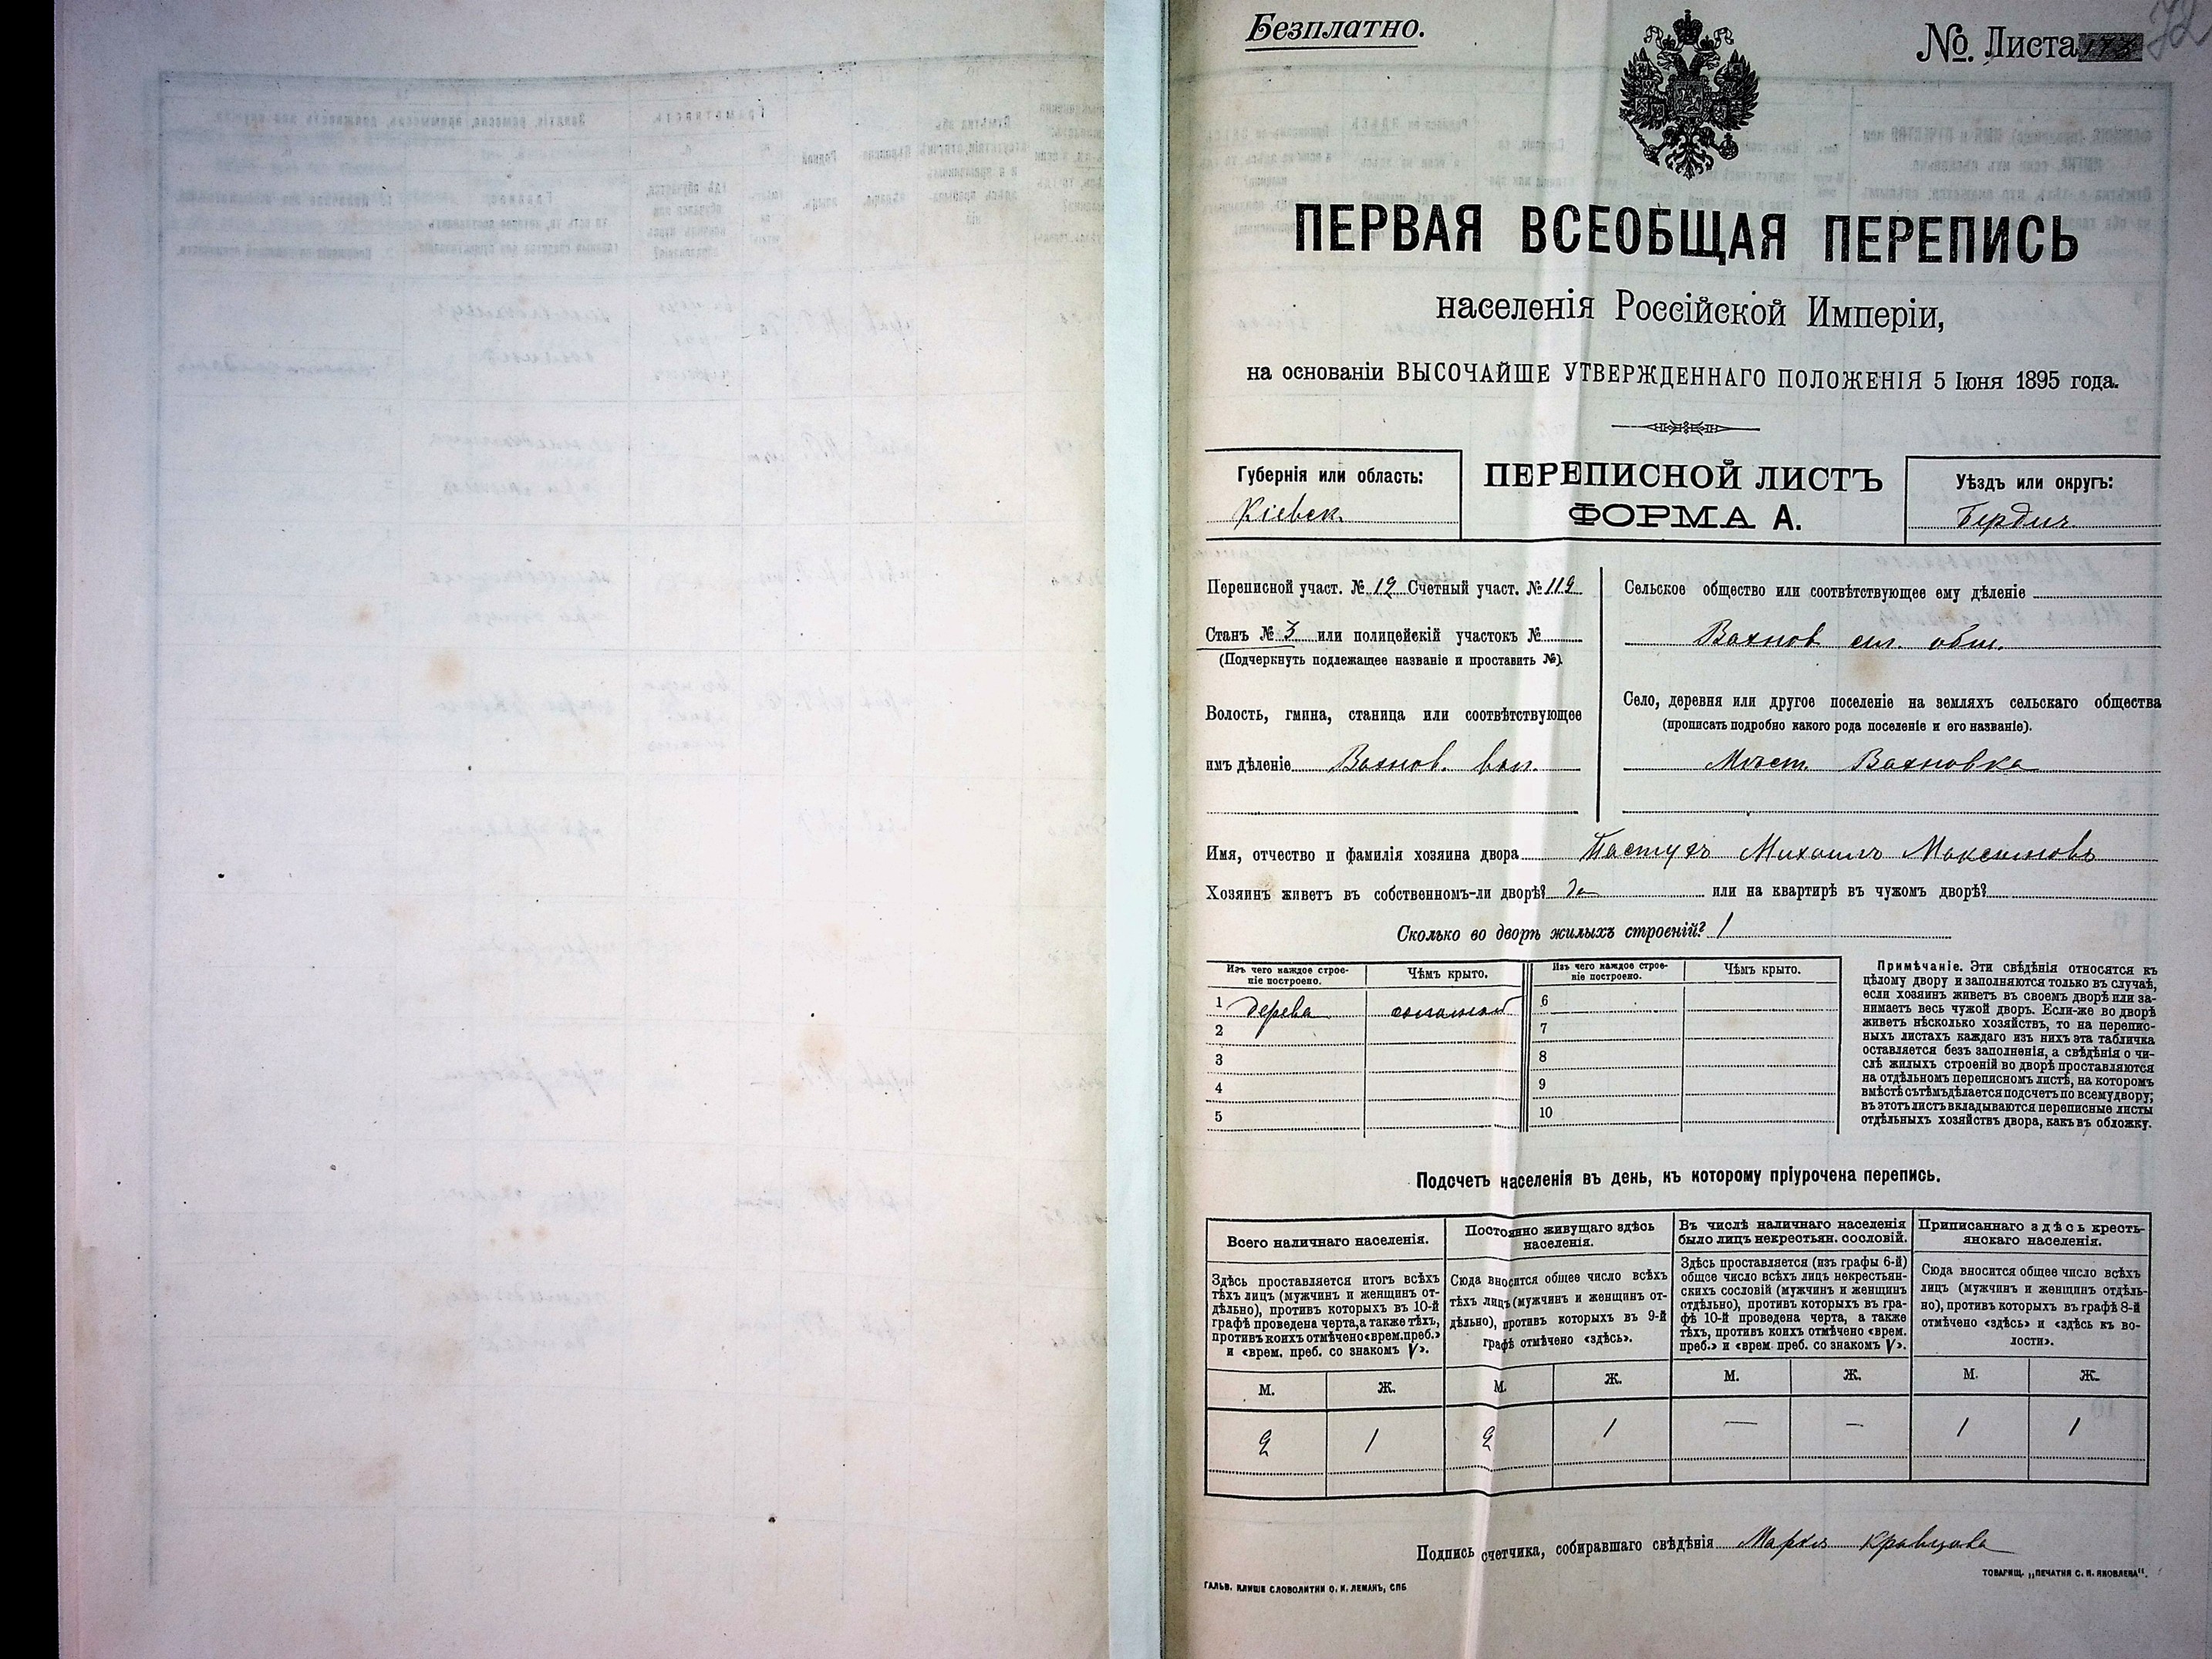 Безплатно.
№. Листа 173
72
ПЕРВАЯ ВСЕОБЩАЯ ПЕРЕПИСЬ
населенія Россійской Имперіи,
на основаніи ВЫСОЧАЙШЕ УТВЕРЖДЕННАГО ПОЛОЖЕНІЯ 5 Іюня 1895 года.
Губернія или область:
Кіевск.
ПЕРЕПИСНОЙ ЛИСТЪ
ФОРМА А.
Уѣздъ или округъ:
Бердич.
Переписной участ. № 12 Счетный участ. № 112
Станъ № 3 или полицейскій участокъ №
(Подчеркнуть подлежащее названіе и проставить №).
Волость, гмина, станица или соотвѣтствующее
имъ дѣленіе Вахнов. вол.
Сельское общество или соотвѣтствующее ему дѣленіе
Вахнов сел. общ.
Село, деревня или другое поселеніе на земляхъ сельскаго общества
(прописать подробно какого рода поселеніе и его названіе).
Мѣст. Вахновка
Имя, отчество и фамилія хозяина двора Пастухъ Михаилъ Максимовъ
Хозяинъ живетъ въ собственномъ-ли дворѣ? Да или на квартирѣ въ чужомъ дворѣ?
Сколько во дворѣ жилыхъ строеній? 1
Изъ чего каждое строе-
ніе построено.
Чѣмъ крыто.
Изъ чего каждое строе-
ніе построено.
Чѣмъ крыто.
1 дерева соломой 6
2 7
3 8
4 9
5 10
Примѣчаніе. Эти свѣдѣнія относятся къ
цѣлому двору и заполняются только въ случаѣ,
если хозяинъ живетъ въ своемъ дворѣ или за-
нимаетъ весь чужой дворъ. Если-же во дворѣ
живетъ нѣсколько хозяйствъ, то на перепис-
ныхъ листахъ каждаго изъ нихъ эта табличка
оставляется безъ заполненія, а свѣдѣнія о чи-
слѣ жилыхъ строеній во дворѣ проставляются
на отдѣльномъ переписномъ листѣ, на которомъ
вмѣстѣ съ тѣмъ дѣлается подсчетъ по всему двору;
въ этотъ листъ вкладываются переписные листы
отдѣльныхъ хозяйствъ двора, какъ въ обложку.
Подсчетъ населенія въ день, къ которому пріурочена перепись.
Всего наличнаго населенія.
Здѣсь проставляется итогъ всѣхъ
тѣхъ лицъ (мужчинъ и женщинъ от-
дѣльно), противъ которыхъ въ 10-й
графѣ проведена черта, а также тѣхъ,
противъ коихъ отмѣчено «врем. преб.»
и «врем. преб. со знакомъ V».
Постоянно живущаго здѣсь
населенія.
Сюда вносится общее число всѣхъ
тѣхъ лицъ (мужчинъ и женщинъ от-
дѣльно), противъ которыхъ въ 9-й
графѣ отмѣчено «здѣсь».
Въ числѣ наличнаго населенія
было лицъ некрестьян. сословій.
Здѣсь проставляется (изъ графы 6-й)
общее число всѣхъ лицъ некрестьян-
скихъ сословій (мужчинъ и женщинъ
отдѣльно), противъ которыхъ въ гра-
фѣ 10-й проведена черта, а также
тѣхъ, противъ коихъ отмѣчено «врем.
преб.» и «врем. преб. со знакомъ V».
Приписаннаго здѣсь кресть-
янскаго населенія.
Сюда вносится общее число всѣхъ
лицъ (мужчинъ и женщинъ отдѣль-
но), противъ которыхъ въ графѣ 8-й
отмѣчено «здѣсь» и «здѣсь къ во-
лости».
М. Ж. М. Ж. М. Ж. М. Ж.
2 1 2 1 — — 1 1
Подпись счетчика, собиравшаго свѣдѣнія Кравцова
ГАЛЬВ. КЛИШЕ СЛОВОЛИТНИ О. И. ЛЕМАНЪ, СПБ
ТОВАРИЩ. „ПЕЧАТНЯ С. П. ЯКОВЛЕВА".